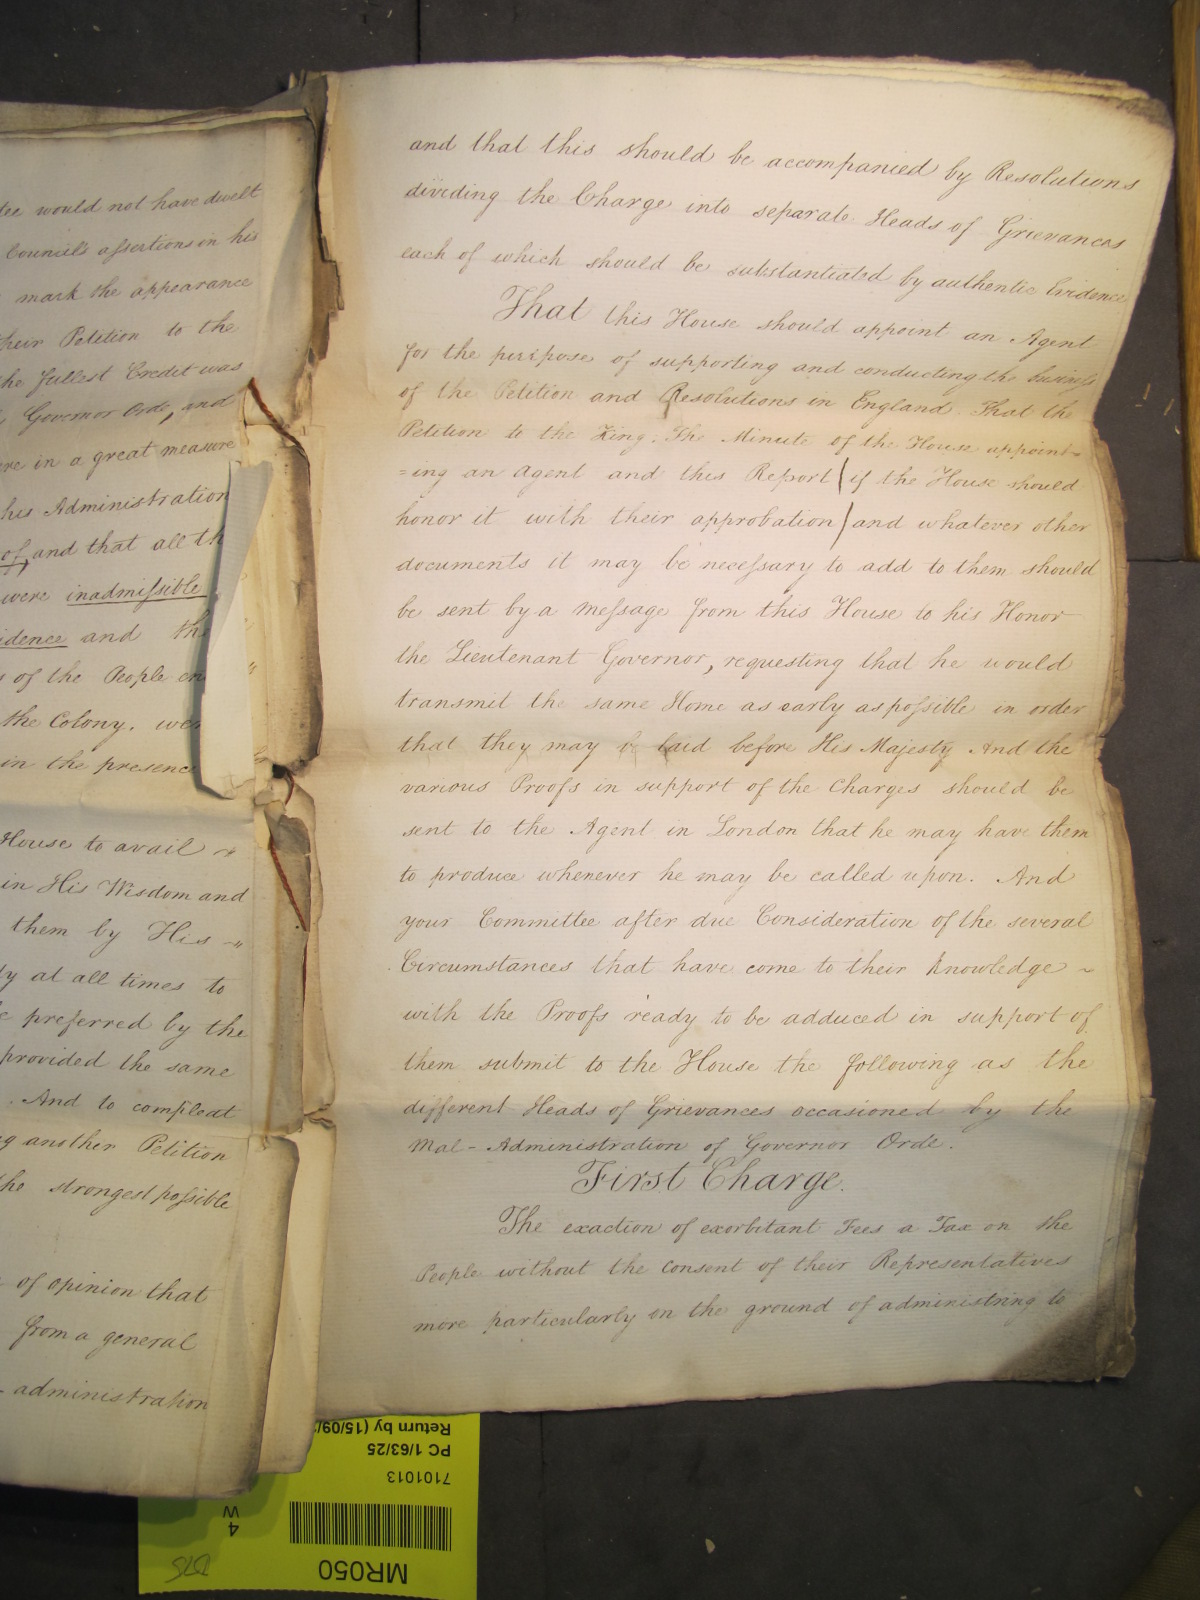 would not have dwelt
Council's assertions in his
mark the appearance
their Petition to the
the fullest Credit was
Governor Orde, and
in a great measure
his Administration
of, and that all th
were inadmissible
idence and the
of the People en
the Colony. wer
in the presenc
House to avail
in His Wisdom and
them by His
at all times to
preferred by the
provided the same
And to compleat
another Petition
the strongest possible
of opinion that
from a general
administration
and that this should be accompanied by Resolutions
dividing the Charge into separate Heads of Grievances
each of which should be substantiated by authentic Evidence
That this House should appoint an Agent
for the purpose of supporting and conducting the business
of the Petition and Resolutions in England. That the
Petition to the King. The Minute of the House appoint=
=ing an Agent and this Report (if the House should
honor it with their approbation) and whatever other
documents it may be necessary to add to them should
be sent by a message from this House to his Honor
the Lieutenant Governor, requesting that he would
transmit the same Home as early as possible in order
that they may be laid before His Majesty And the
various Proofs in support of the Charges should be
sent to the Agent in London that he may have them
to produce whenever he may be called upon. And
your Committee after due Consideration of the several
Circumstances that have come to their Knowledge ~
with the Proofs ready to be adduced in support of
them submit to the House the following as the
different Heads of Grievances occasioned by the
Mal-Administration of Governor Orde.
First Charge.
The exaction of exorbitant Fees a Tax on the
People without the consent of their Representatives
more particularly on the ground of administring to
Return by (15/09/
PC 1/63/25
7101013
4
W
MR050